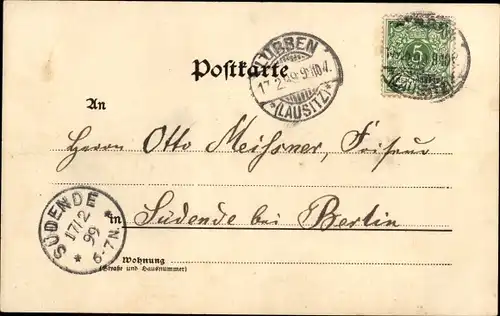 LÜBBEN
17.2.99. 9-10V.
*(LAUSITZ)*
5
Postkarte
An
Herrn Otto Meissner, Friseur
in Südende bei Berlin
SÜDENDE
17/2
99
6-7N.
Wohnung
(Straße und Hausnummer)